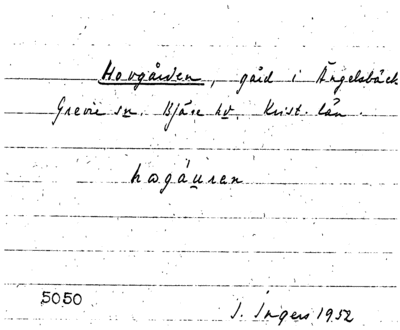 Hovgården, gård i Ängelsbäck
Grevie sn. Bjäre hd. Krist. län.
hɷgáuren
5050
I. Ingers 1952